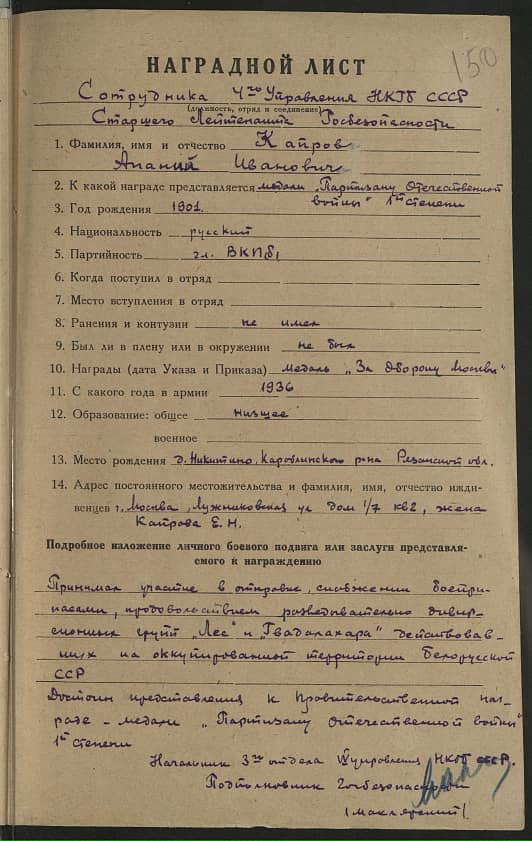 150
НАГРАДНОЙ ЛИСТ
Сотрудника 4го Управления НКГБ СССР
(должность, отряд и соединение)
Старшего Лейтенанта Госбезопасности
1. Фамилия, имя и отчество Капров
Ананий Иванович
2. К какой награде представляется медали „Партизану Отечественной
войны" 1ой степени
3. Год рождения 1901
4. Национальность русский
5. Партийность чл. ВКП/б/
6. Когда поступил в отряд
7. Место вступления в отряд
8. Ранения и контузии не имел
9. Был ли в плену или в окружении не был
10. Награды (дата Указа и Приказа) медаль „За Оборону Москвы"
11. С какого года в армии 1936
12. Образование: общее низшее
военное
13. Место рождения д. Никитино, Кораблинского р-на Рязанской обл.
14. Адрес постоянного местожительства и фамилия, имя, отчество ижди-
венцев г. Москва, Лужниковская ул дом 1/7 кв 2, жена
Капрова Е. Н.
Подробное изложение личного боевого подвига или заслуги представля-
емого к награждению
Принимал участие в отправке, снабжении боепри-
пасами, продовольствием разведывательно дивер-
сионных групп „Лес" и „Гвадалахара" действовав-
ших на оккупированной территории Белорусской
ССР
Достоин представления к Правительственной наг-
раде - медали „Партизану Отечественной войны"
1ой степени
Начальник 3го отдела 4 управления НКГБ СССР.
Подполковник Госбезопасности
/Маклярский/